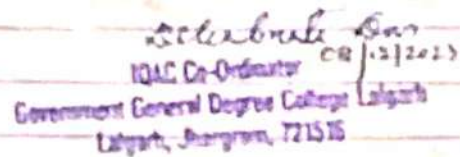 Das
08/12/2023
IQAC Co-Ordinator
Government General Degree College Lalgarh
Lalgarh, Jhargram, 721516